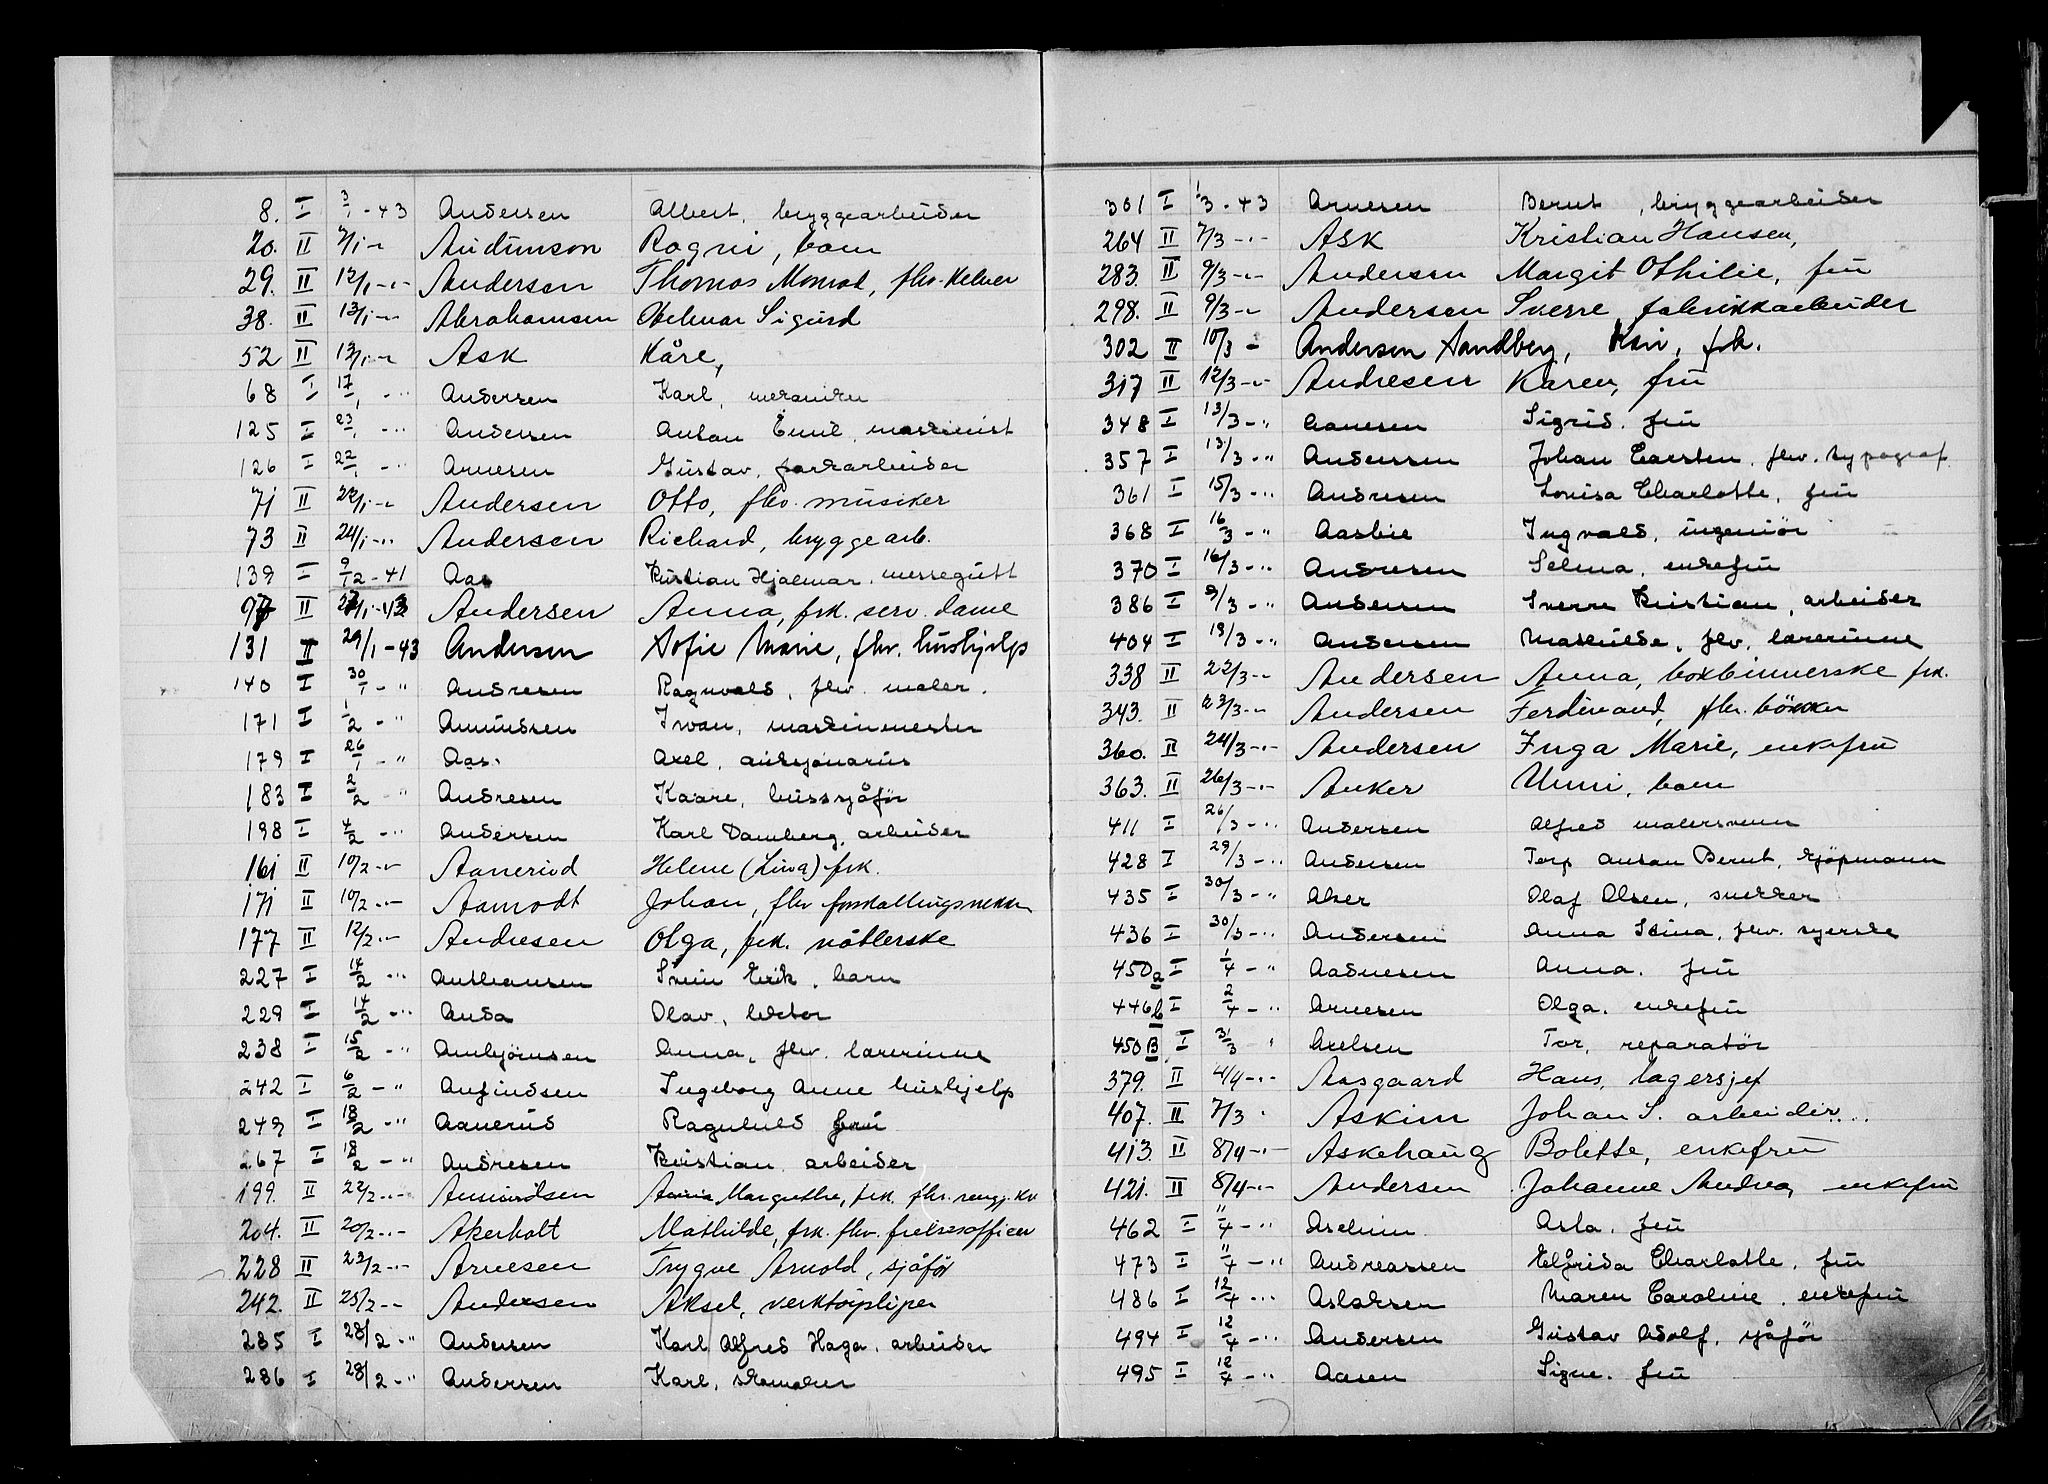 8. I 3/1 - 43 Andersen Albert, bryggearbeider
20. II 7/1 - Audunson Ragni, barn
29. II 12/1 -"- Andersen Thomas Monrad, fhv. kelner
38. II 13/1 -"- Abrahamsen Sigurd
52 II 13/1 - Ask Kåre,
68 I 17/1 -"- Andersen Karl, mekaniker
125 I 23/1 -"- Andersen Anton Emil, maskinist
126 I 22/1 -"- Arnesen Gustav, parkarbeider
71 II 22/1 -"- Andersen Otto, fhv. musiker
73 II 24/1 -"- Andersen Richard, bryggearb.
139 I 9/12 - 41 Aas Kristian Hjalmar, messegutt
97 II 27/1 - 43 Andersen Anna, frk. serv. dame
131 II 29/1 - 43 Andersen Sofie Marie, fhv. hushjelp
140 I 30/1 - " Andresen Ragnvald, fhv. maler.
171 I 1/2 - " Amundsen Ivan, maskinmester
179 I 26/1 - " Aas. Axel, auksjonarius
183 I 2/2 " Andresen Kaare, bussjåför
198 I 4/2 -"- Andersen Karl Damberg, arbeider
161 II 10/2 -"- Aanerud Helene (Lina) frk.
171 II 10/2 -"- Aamodt Johan, fhv forskallingsnekker
177 II 12/2 -"- Andresen Olga, frk. nåtlerske
227 I 14/2 -"- Anthonsen Svein Erik, barn
229 I 14/2 -"- Anda Olav, lektor
238 I 15/2 -"- Arnbjörnsen Anna, fhv. lærerinne
242 I 6/2 - " Anfindsen Ingeborg Anne hushjelp
249 I 18/2 -"- Aanerud Ragnhild fru
267 I 18/2 -"- Andresen Kristian, arbeider
199. II 22/2 -"- Amundsen Margrethe, frk. fhv. rengj. kv
204. II 20/2 -"- Akerholt Mathilde, frk. fhv. frelsesofficer
228 II 23/2 -"- Arnesen Trygve Arnold, sjåför
242. II 25/2 -"- Andersen Aksel, verktöipliper
285 I 28/2 -"- Andersen Karl Alfred Haga, arbeider
286 I 28/2 -"- Andersen Karl, skomaker
301 I 1/3 - 43 Arnesen Bernt, bryggearbeider
264 II 7/3 -"- Ask Kristian Hansen,
283. II 9/3 -"- Andersen Margit Othilie, fru
298. II 9/3 -"- Andersen Sverre fabrikkarbeider
302 II 10/3 - Andersen Sandberg, Kari, frk.
317 II 12/3 -"- Andresen Karen, fru
348 I 13/3 -" Aanesen Sigrid, fru
357 I 13/3 -" Anderssen Johan Carsten, fhv. typograf
361 I 15/3 -"- Andresen Lovisa Charlotte, fru
368 I 16/3 - " Aasbie Ingvald, ingeniör
370 I 16/3 -"- Andresen Selma, enkefru
386 I 9/3 - " Andersen Sverre Kristian, arbeider
404 I 19/3 -"- Andersen Mathilde, fhv. lærerinne
338 II 22/3 -"- Andersen Anna, bokbinnerske frk.
343. II 23/3 -"- Andersen Ferdinand, fhv. bökker
360. II 24/3 -"- Andersen Inga Marie, enkefru
363. II 26/3 -"- Anker Unni, barn
411 I 26/3 -"- Andersen Alfred malersvenn
428 I 29/3 -"- Andersen Terp Anton Bernt, kjöpmann
435 I 30/3 -" Aker Olaf Olsen, snekker
436 I 30/3 -"- Andersen Anna Stina, fhv. syerske
450a I 1/4 - " Aadnesen Anna, fru
446b I 2/4 -"- Arnesen Olga, enkefru
450B I 31/3 " Axelsen Tor, reparatör
379. II 4/4 -"- Aasgaard Hans, lagersjef
407. II 7/3 Askim Johan S. arbeider...
413. II 8/4 -"- Askehaug Bolette, enkefru
421. II 8/4 -"- Andersen Johanne Andrea, enkefru
462 I 11/4 -"- Aschim Asta, fru
473 I 11/4 -"- Andreassen Elfrida Charlotte, fru
486 I 12/4 -"- Aslaksen Maren Caroline, enkefru
494 I 12/4 -"- Andersen Gustav Adolf, sjåför
495 I 12/4 -"- Aasen Signe, fru